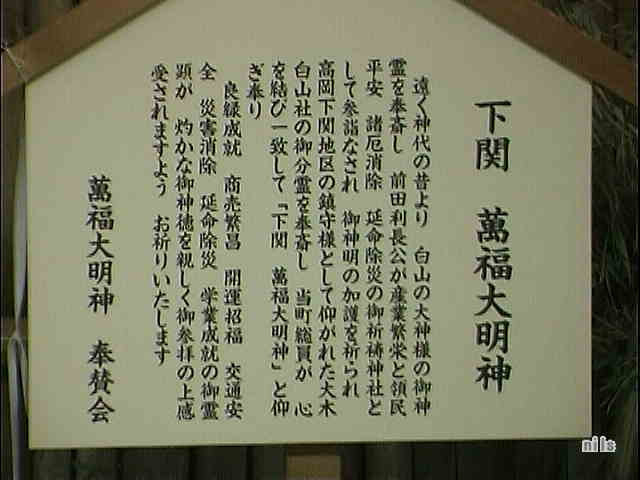 下関　萬福大明神
遠く神代の昔より　白山の大神様の御神
霊を奉斎し　前田利長公が産業繁栄と領民
平安　諸厄消除　延命除災の御祈祷神社と
して参詣なされ　御神明の加護を祈られ
高岡下関地区の鎮守様として仰がれた大木
白山社の御分霊を奉斎し　当町総員が　心
を結び一致して「下関　萬福大明神」と仰
ぎ奉り
良縁成就　商売繁昌　開運招福　交通安
全　災害消除　延命除災　学業成就の御霊
顕が　灼かな御神徳を親しく御参拝の上感
受されますよう　お祈りいたします
萬福大明神　奉賛会
nils